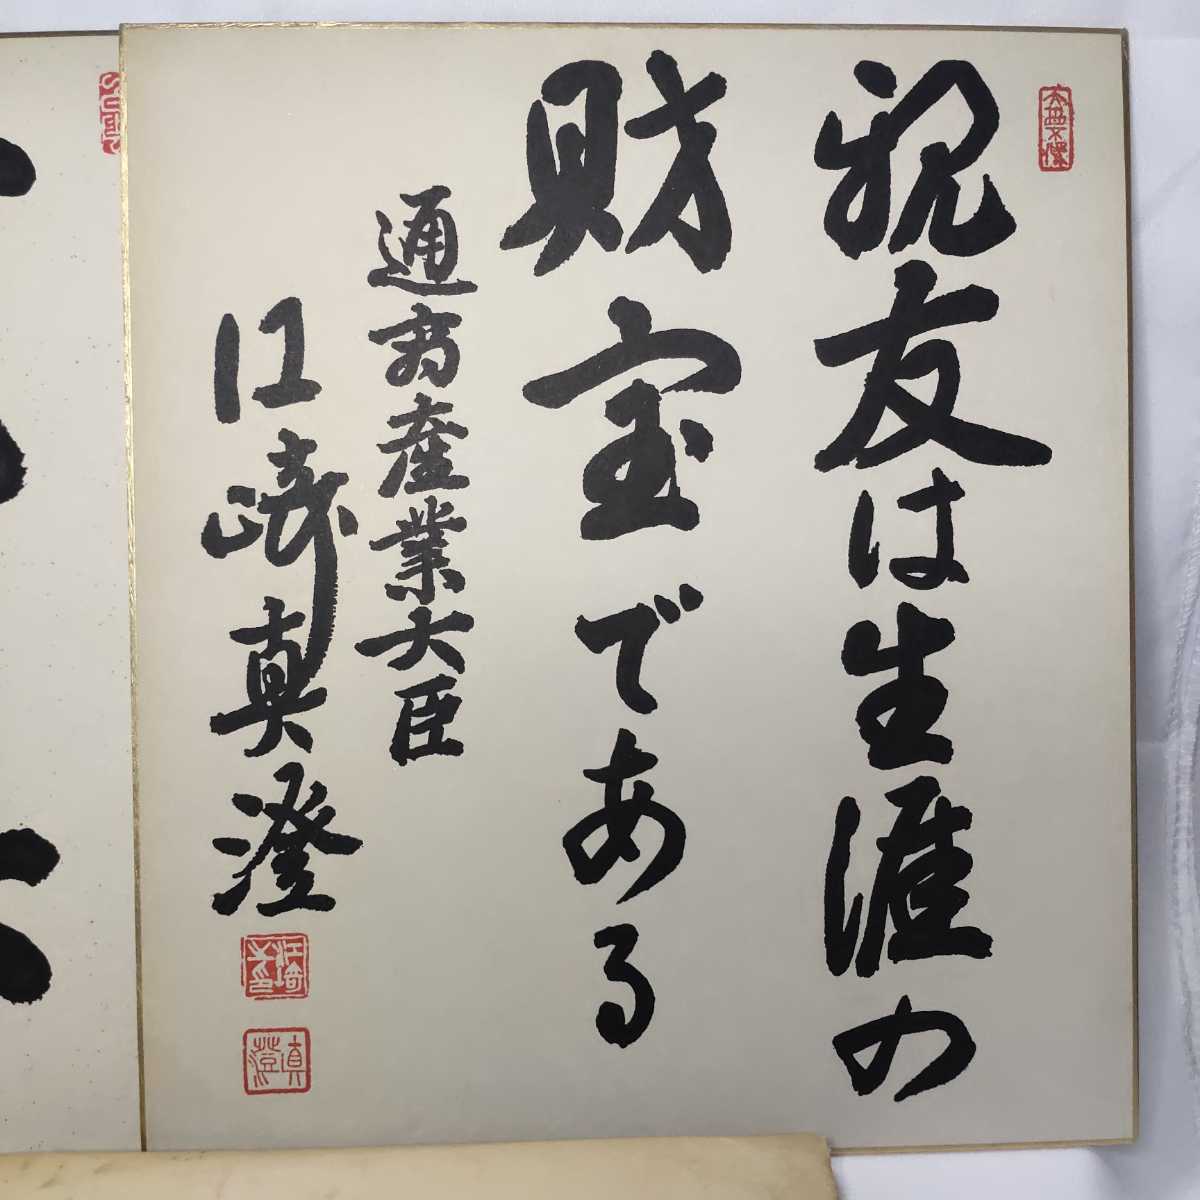 親友は生涯の
財宝である
通商産業大臣
江崎真澄
江崎
真澄